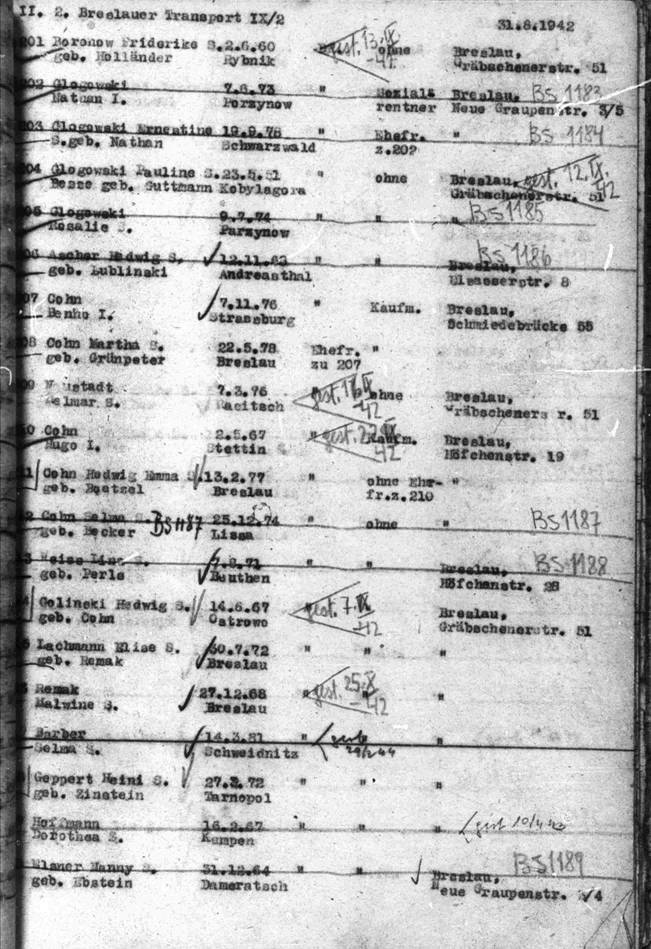 II. 2. Breslauer Transport IX/2 31.8.1942
201 Boronow Friderike S. 2.6.60 gest. 13.IX -42 ohne Breslau,
geb. Holländer Rybnik Gräbschenerstr. 51
202 Glogowski 7.6.73 " Sozial- Breslau, BS 1183
Nathan I. Parzynow rentner Neue Graupenstr. 3/5
203 Glogowski Ernestine 19.9.78 " Ehefr. " BS 1184
S. geb. Nathan Schwarzwald z.202
204 Glogowski Pauline S. 23.5.51 " ohne Breslau, gest. 12.IX. 42
geb. Guttmann Kobylagora Gräbschenerstr. 51
05 Glogowski 9.7.74 " " " BS1185
Rosalie S. Parzynow
06 Ascher Hedwig S. 12.11.63 " " Breslau, BS1186
geb. Lublinski Andreasthal Elsasserstr. 8
07 Cohn 7.11.76 " Kaufm. Breslau,
Benno I. Strassburg Schmiedebrücke 55
08 Cohn Martha S. 22.5.78 Ehefr. "
geb. Grünpeter Breslau zu 207
09 Neustadt 7.3.76 gest. -42 ohne Breslau,
Selmar S. Gräbschenerstr. 51
10 Cohn 2.5.67 " gest. 42 Kaufm. Breslau,
Hugo I. Stettin Höfchenstr. 19
1 Cohn Hedwig Emma S. 13.2.77 " ohne Ehe- "
geb. Breslau fr.z.210
2 Cohn Selma S. BS1187 25.12.74 " ohne " BS1187
geb. Becker Lissa
3 Weiss Lina S. 7.8.71 " " Breslau, BS1188
geb. Perls Beuthen Höfchenstr. 28
Golinski Hedwig S. 14.6.67 gest. 7.IX -42 Breslau,
geb. Cohn Ostrowo Gräbschenerstr. 51
Lachmann Elise S. 30.7.72 " " "
geb. Remak Breslau
Remak 27.12.68 " gest. 25.X -42 "
Malwine S. Breslau
Barber 14.3.81 " "
Selma S. Schweidnitz
Geppert Heini S. 27.2.72 " " "
geb. Zinstein Tarnopol
Hoffmann 16.2.67 " " " gest
Dorothea S. Kempen
Elsner Nanny S. 31.12.64 " " Breslau, BS1189
geb. Ebstein Dameratsch Neue Graupenstr. 4